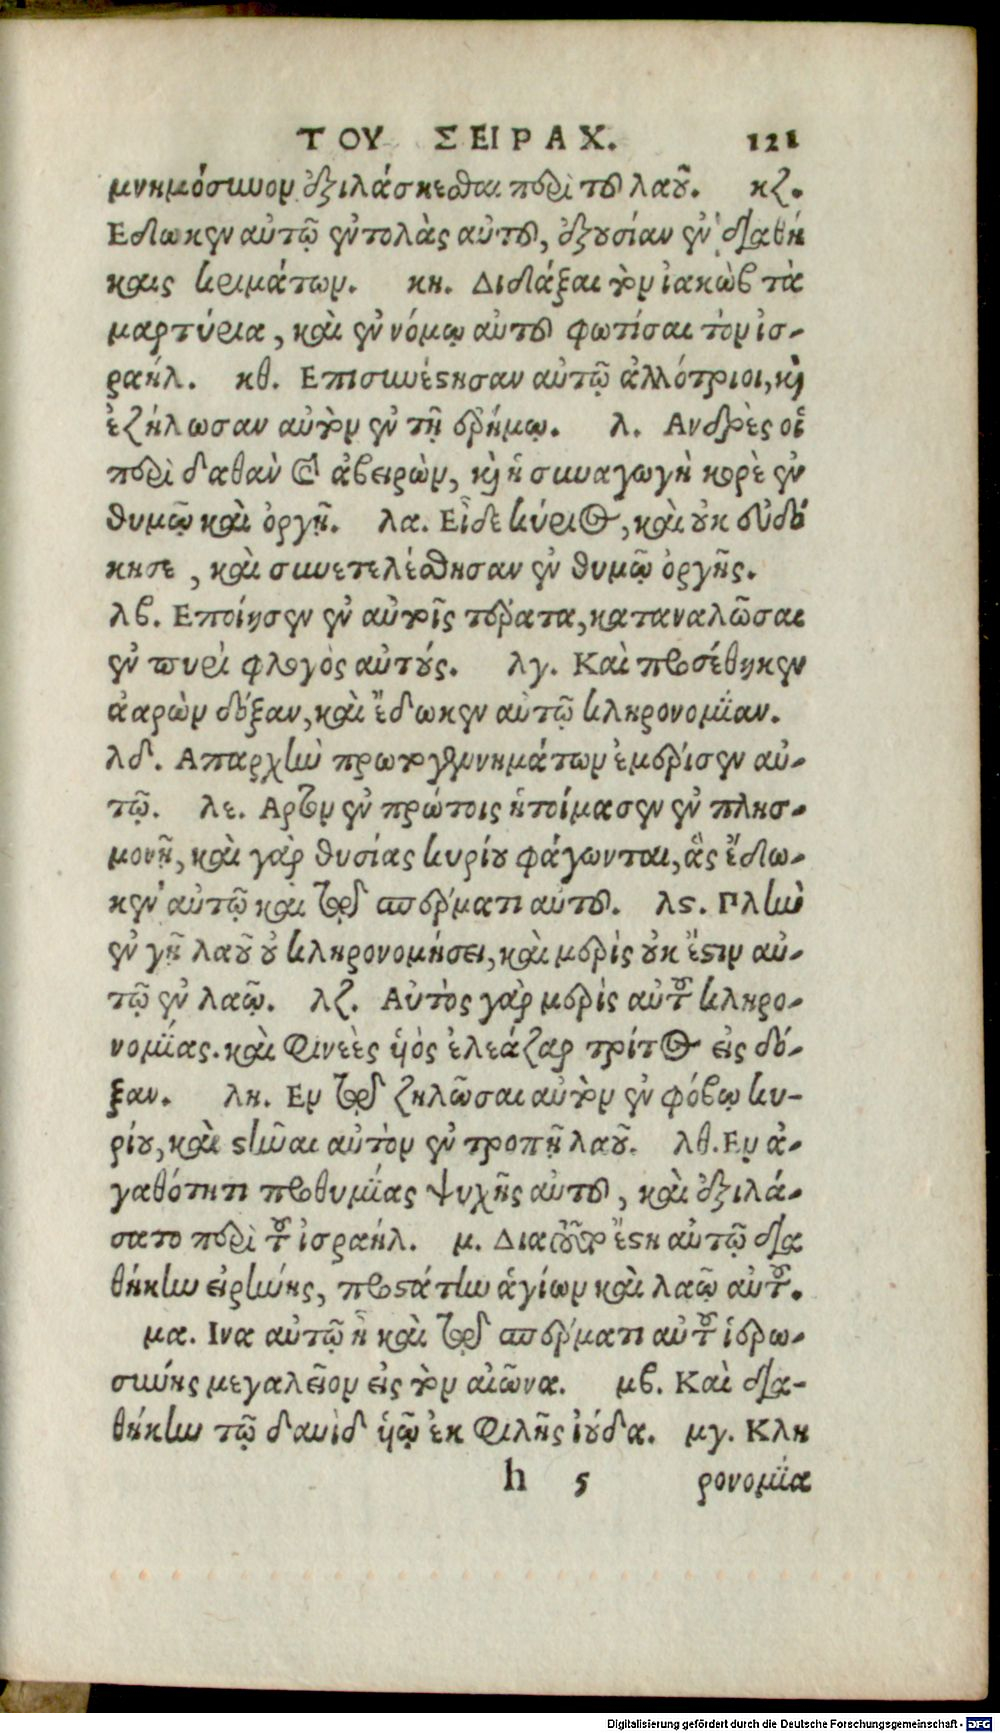 ΤΟΥ ΣΕΙΡΑΧ. 121
μνημόσυνον ἐξιλάσκεσθαι περὶ τοῦ λαοῦ. κζ.
Εδωκεν αὐτῷ ἐντολὰς αὐτοῦ, ἐξουσίαν ἐν διαθή
καις κριμάτων. κη. Διδάξαι τὸν ἰακὼβ τὰ
μαρτύρια, καὶ ἐν νόμῳ αὐτοῦ φωτίσαι τὸν ἰσ-
ραήλ. κθ. Επισυνέστησαν αὐτῷ ἀλλότριοι, καὶ
ἐζήλωσαν αὐτὸν ἐν τῇ ἐρήμῳ. λ. Ανδρες οἱ
περὶ δαθὰν καὶ ἀβειρὼν, καὶ ἡ συναγωγὴ κορὲ ἐν
θυμῷ καὶ ὀργῇ. λα. Εἶδε κύριος, καὶ οὐκ εὐδό
κησε, καὶ συνετελέσθησαν ἐν θυμῷ ὀργῆς.
λβ. Εποίησεν ἐν αὐτοῖς τέρατα, καταναλῶσαι
ἐν πυρὶ φλογὸς αὐτούς. λγ. Καὶ προσέθηκεν
ἀαρὼν δόξαν, καὶ ἔδωκεν αὐτῷ κληρονομίαν.
λδ. Απαρχὴν πρωτογεννημάτων ἐμέρισεν αὐ-
τῷ. λε. Αρτον ἐν πρώτοις ἡτοίμασεν ἐν πλησ-
μονῇ, καὶ γὰρ θυσίας κυρίου φάγονται, ἃς ἔδω-
κεν αὐτῷ καὶ τῷ σπέρματι αὐτοῦ. λϛ. Πλὴν
ἐν γῇ λαοῦ οὐ κληρονομήσει, καὶ μερὶς οὐκ ἔστιν αὐ-
τῷ ἐν λαῷ. λζ. Αὐτὸς γὰρ μερὶς αὐτοῦ κληρο-
νομίας. καὶ Φινεὲς υἱὸς ἐλεάζαρ τρίτος εἰς δό-
ξαν. λη. Εν τῷ ζηλῶσαι αὐτὸν ἐν φόβῳ κυ-
ρίου, καὶ στῆναι αὐτὸν ἐν τροπῇ λαοῦ. λθ. Εν ἀ-
γαθότητι προθυμίας ψυχῆς αὐτοῦ, καὶ ἐξιλά-
σατο περὶ τοῦ ἰσραήλ. μ. Διατοῦτο ἔστη αὐτῷ δια
θήκην εἰρήνης, προστάτην ἁγίων καὶ λαῷ αὐτοῦ.
μα. Ινα αὐτῷ ᾖ καὶ τῷ σπέρματι αὐτοῦ ἱερω-
σύνης μεγαλεῖον εἰς τὸν αἰῶνα. μβ. Καὶ δια-
θήκην τῷ δαυὶδ υἱῷ ἐκ φυλῆς ἰούδα. μγ. Κλη
h 5 ρονομία
Digitalisierung gefördert durch die Deutsche Forschungsgemeinschaft - DFG